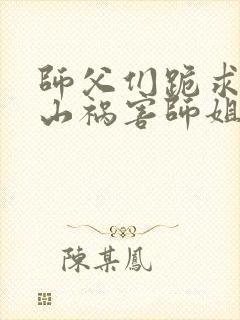 師父们跪求
山祸害師姐
陳某鳳